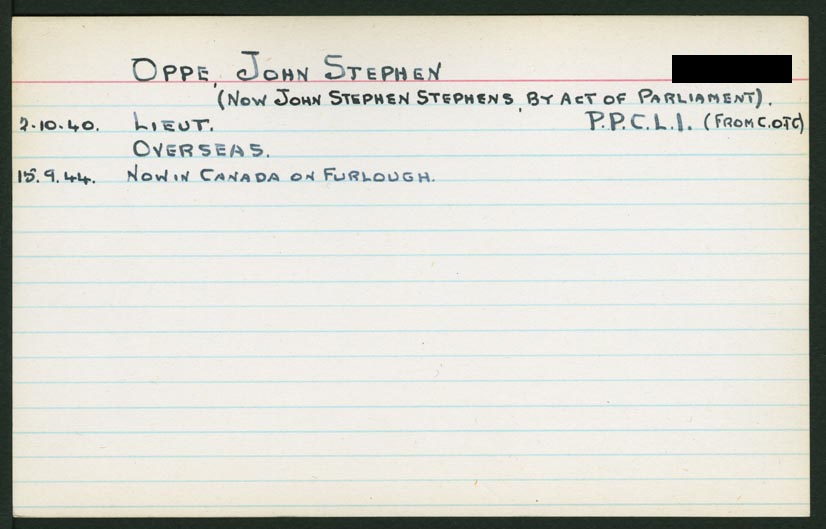 OPPE, JOHN STEPHEN
(NOW JOHN STEPHEN STEPHENS, BY ACT OF PARLIAMENT).
2.10.40. LIEUT. P.P.C.L.I. (FROM C.OTC)
OVERSEAS.
15.9.44. NOW IN CANADA ON FURLOUGH.